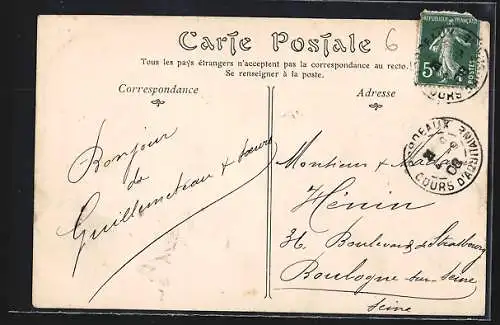 Carte Postale
6
Tous les pays étrangers n'acceptent pas la correspondance au recto.
Se renseigner à la poste.
Correspondance
Adresse
REPUBLIQUE FRANÇAISE
5c
POSTES
COURS
BORDEAUX
COURS D'AQUITAINE
08
Bonjour
de
Monsieur & Madame
Hénin
36, Boulevard de Strasbourg
Boulogne sur Seine
Seine